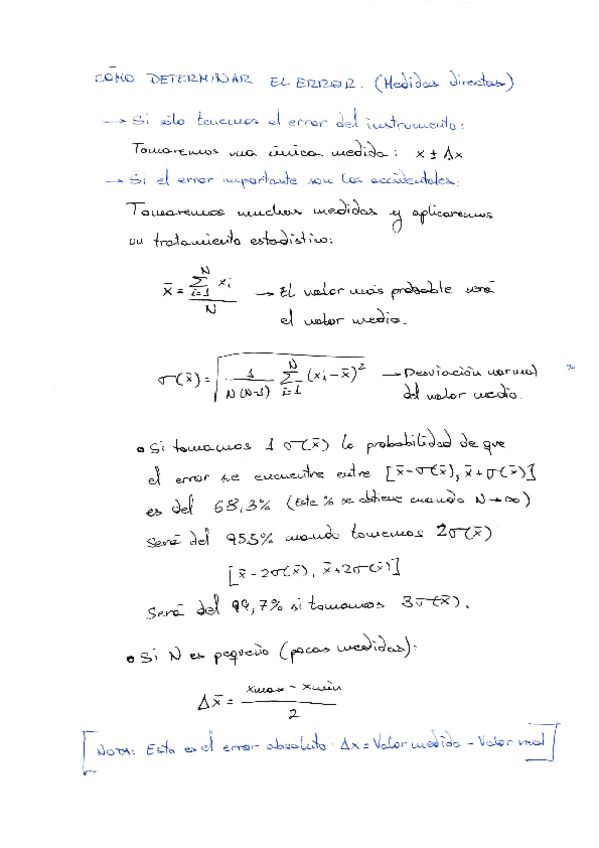 CÓMO DETERMINAR EL ERROR. (Medidas directas)
→ Si sólo tenemos el error del instrumento:
Tomaremos una única medida: x ± Δx
→ Si el error importante son los accidentales:
Tomaremos muchas medidas y aplicaremos
un tratamiento estadístico:
x̄ = (∑_{i=1}^{N} xi) / N → El valor más probable será
el valor medio.
σ(x̄) = √(1/(N(N-1)) ∑_{i=1}^{N} (xi - x̄)²) → Desviación normal
del valor medio.
• Si tomamos 1 σ(x̄) la probabilidad de que
el error se encuentre entre [x̄-σ(x̄), x̄+σ(x̄)]
es del 68,3% (Este % se obtiene cuando N→∞)
Será del 95,5% cuando tomemos 2σ(x̄)
[x̄-2σ(x̄), x̄+2σ(x̄)]
Será del 99,7% si tomamos 3σ(x̄).
• Si N es pequeño (pocas medidas):
Δx̄ = (xmax - xmín) / 2
[NOTA: Este es el error absoluto. Δx = Valor medido - Valor real]